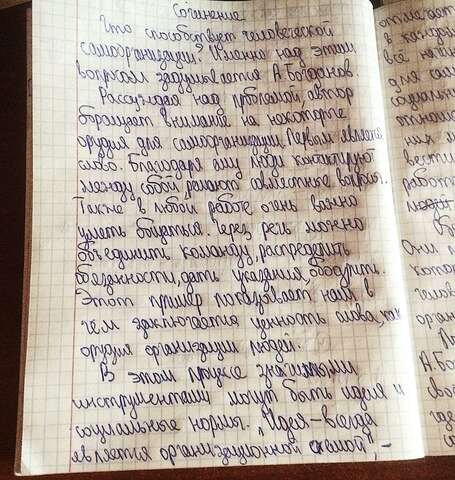 Сочинение
Что способствует человеческой
самоорганизации? Именно над этим
вопросом задумывается А.Богданов.
Рассуждая над проблемой, автор
обращает внимание на некоторые
орудия для самоорганизации. Первым является
слово. Благодаря ему люди контактируют
между собой, решают совместные вопросы.
Также в любой работе очень важно
уметь общаться. Через речь можно
объединить команду, распределить
обязанности, дать указания, ободрить.
Этот пример показывает нам в
чем заключается ценность слова, как
орудия организации людей.
В этом процессе значимыми
инструментами могут быть идея и
социальные нормы. „Идея – всегда
является организационной схемой", –
отмечает
в каждой
всё
для сам
социальн
них
вести
работ
Они
чело
А.Бог
сво
где